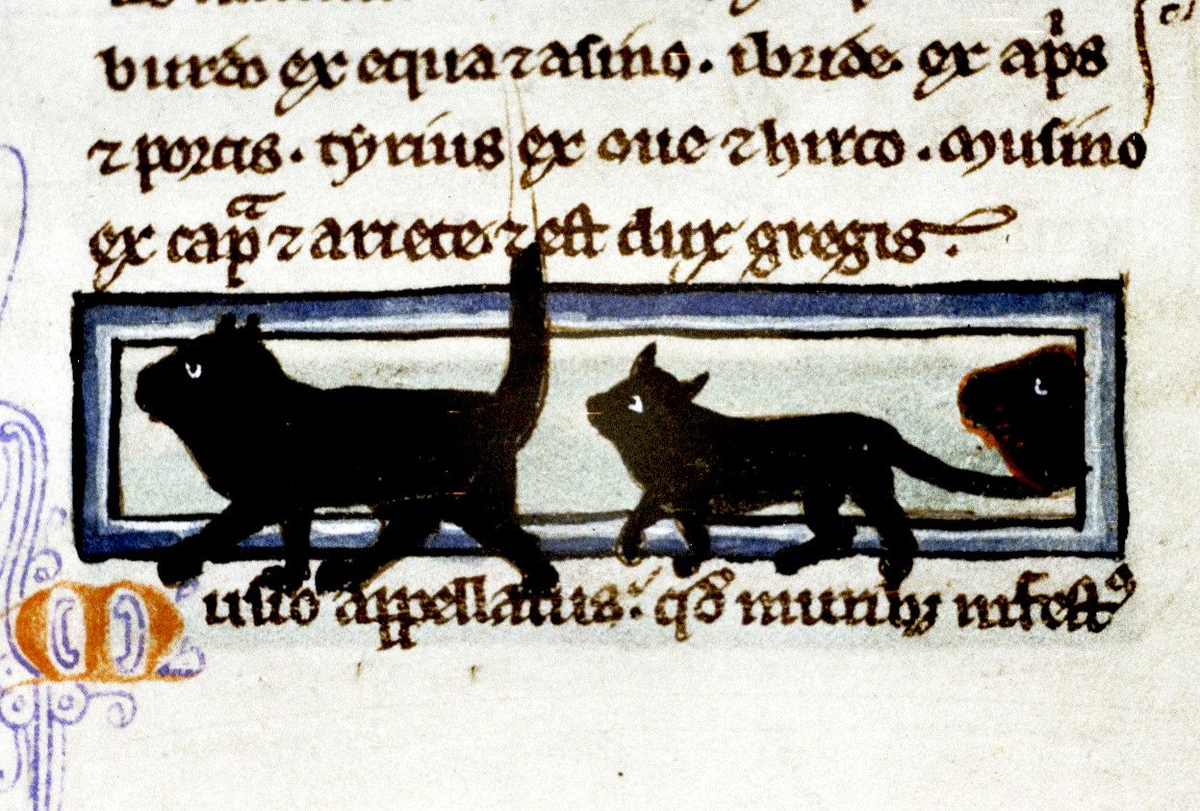 burdo ex equa ⁊ asino. ibride ex apͥs
⁊ porcis. tyrius ex oue ⁊ hirco. Musino
ex capͣ ⁊ ariete ⁊ est dux gregis.
Musio appellatus: qđ muribꝫ infestꝰ